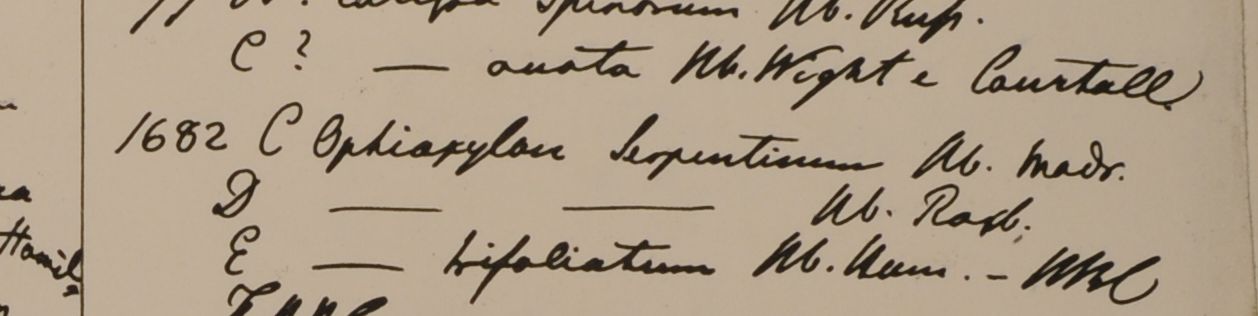 Carissa spinarum Hb. Russ.
C ? — ovata Hb. Wight e Courtall.
1682 C Ophioxylon Serpentinum Hb. Madr.
D — — Hb. Roxb.
E — trifoliatum Hb. Ham. -
Hamil